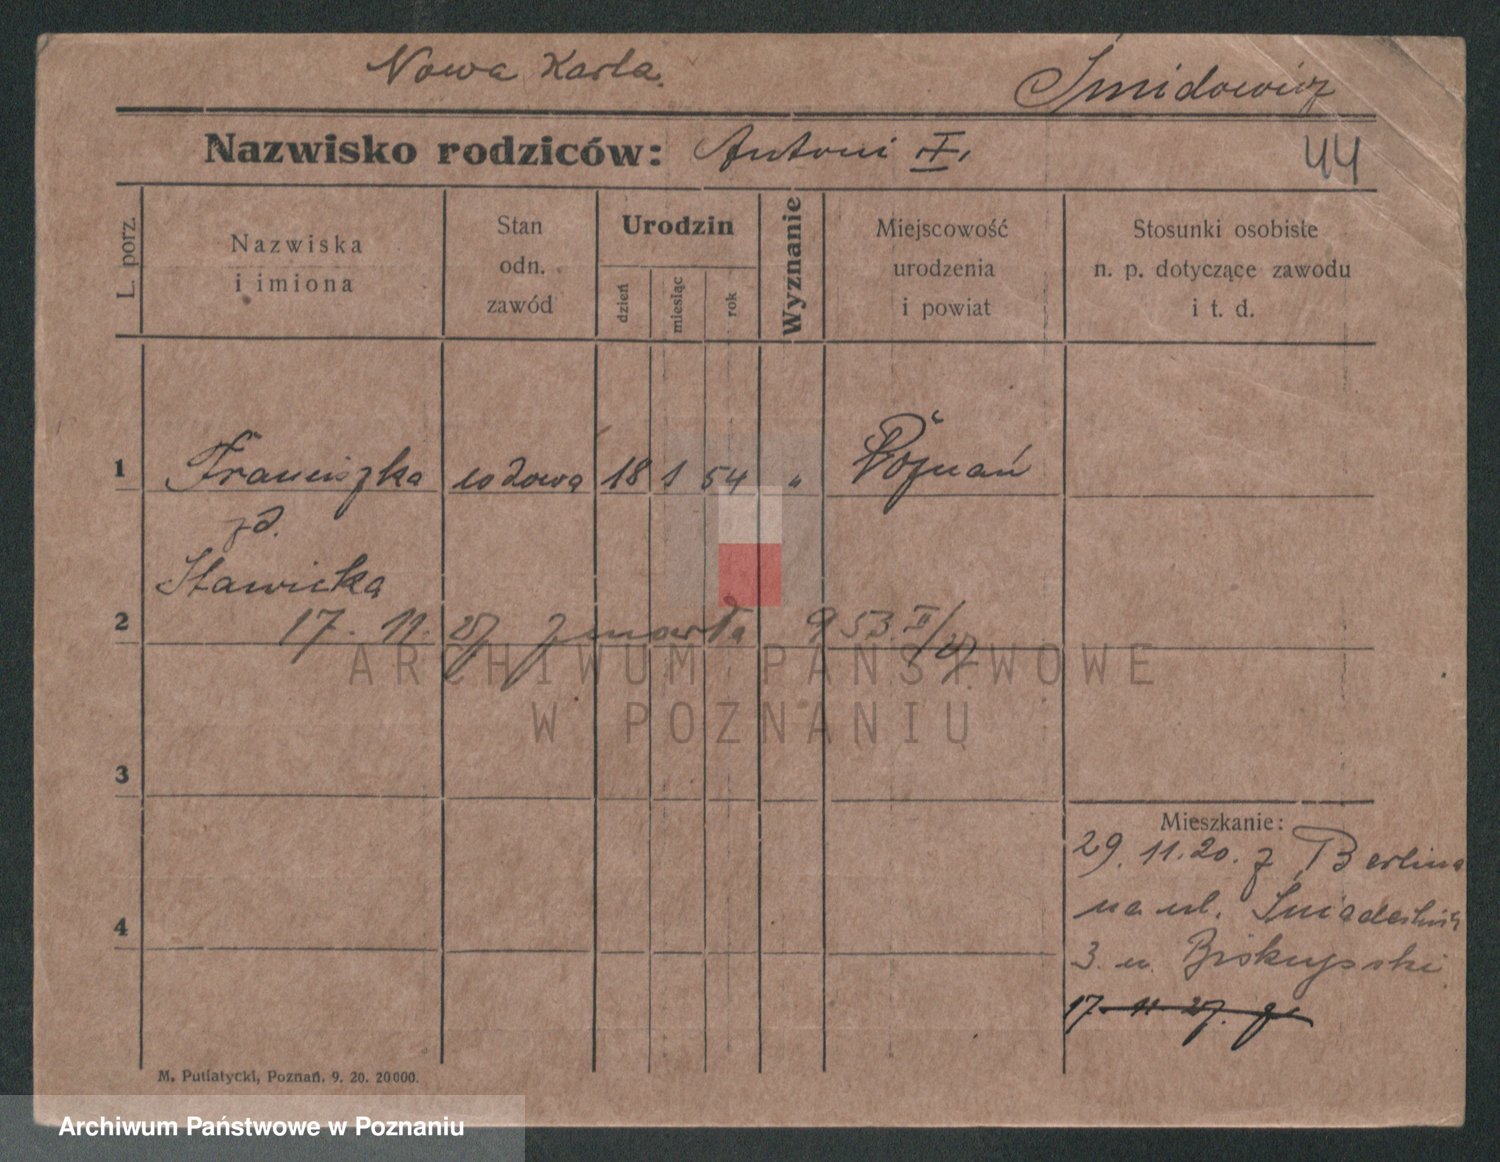 Nowa Karta.
Śmidowicz
Nazwisko rodziców: Antoni I.
44
L. porz.
Nazwiska
i imiona
Stan
odn.
zawód
Urodzin
dzień
miesiąc
rok
Wyznanie
Miejscowość
urodzenia
i powiat
Stosunki osobiste
n. p. dotyczące zawodu
i t. d.
1 Franciszka wdowa 18 1 54 " Poznań
zd.
Stawicka
2 17. 11. 27 zmarła 953 II/27
ARCHIWUM PAŃSTWOWE
W POZNANIU
3
Mieszkanie:
29. 11. 20. z Berlina
na ul. Śniadeckich
4
3. u. Biskupski
17. 11 27.
M. Putiatycki, Poznań. 9. 20. 20000.
Archiwum Państwowe w Poznaniu